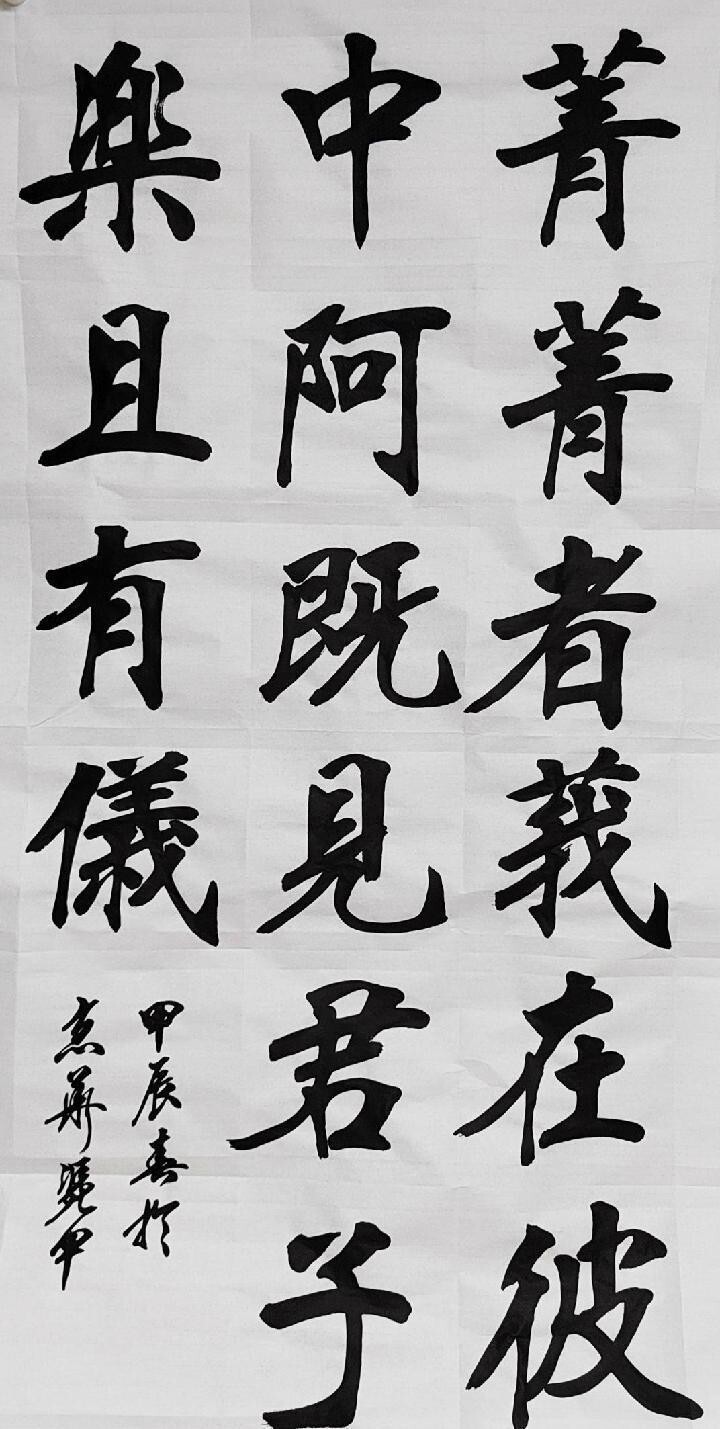 菁菁者莪在彼
中阿既见君子
楽且有儀
甲辰春於
京華